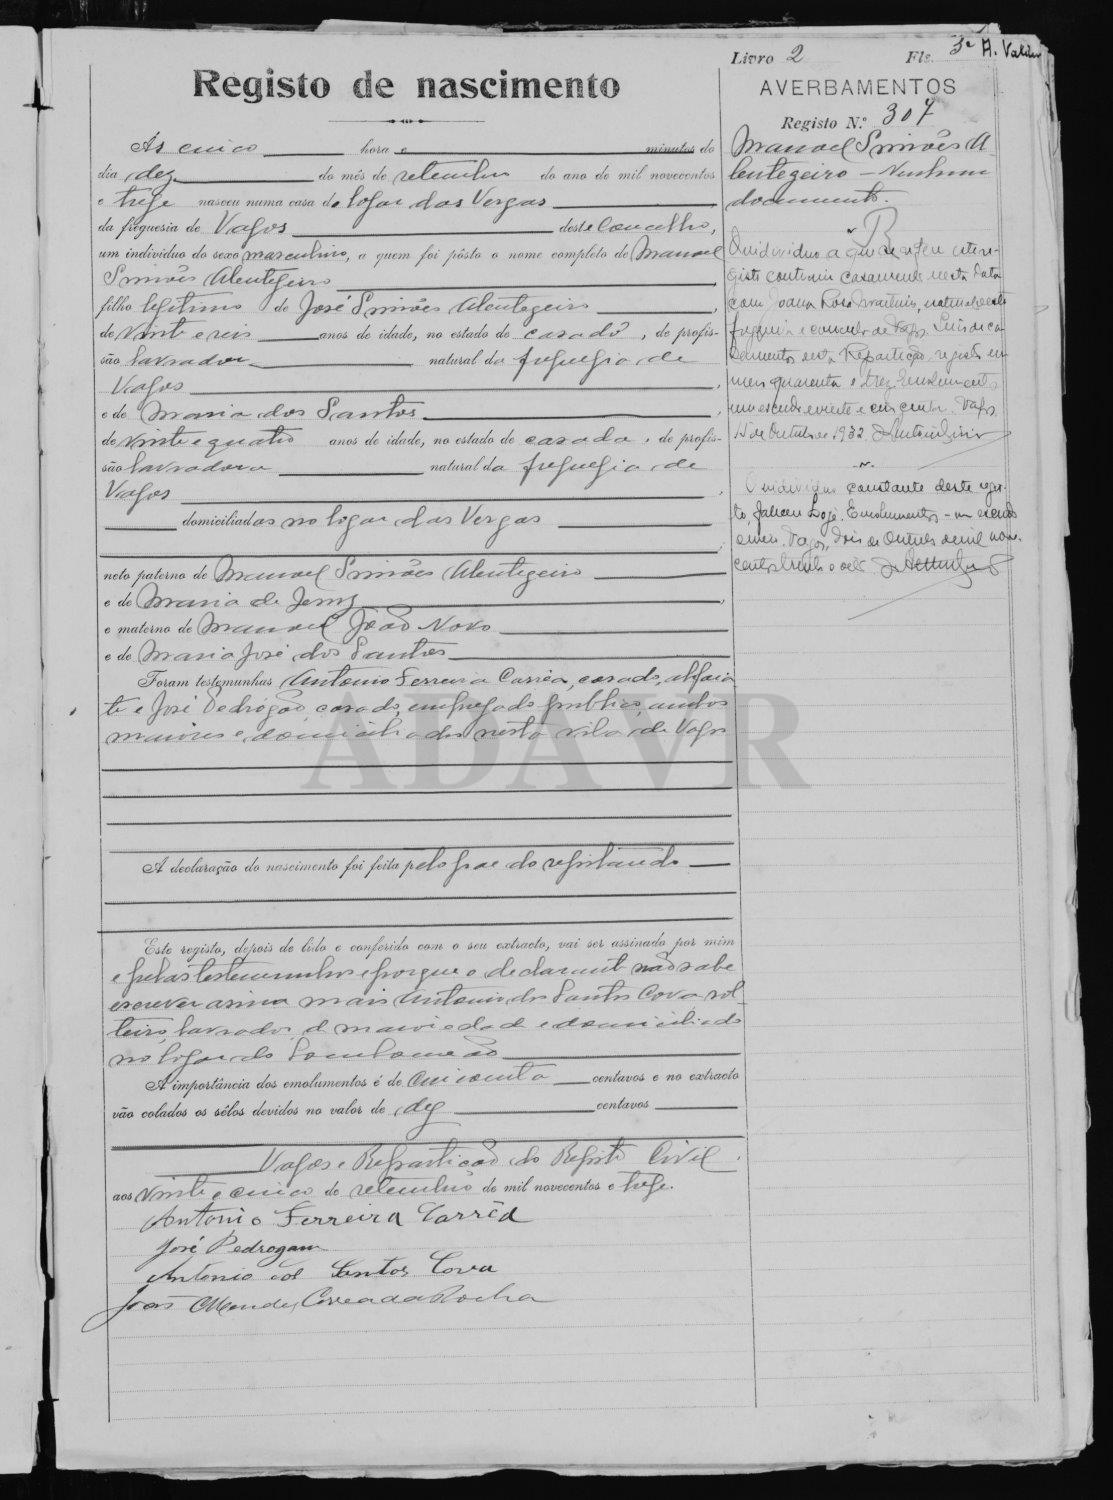 Livro 2 Fls. 3
A. Valdu
Registo de nascimento
AVERBAMENTOS
Registo N.º 307
Ás cinco hora e minutos do
dia dez do mês de setembro do ano de mil novecentos
e treze nasceu numa casa do logar das Vergas
da freguesia de Vagos deste concelho,
um individuo do sexo masculino, a quem foi pôsto o nome completo de Manuel
Simões Alentegeiro
filho legitimo de José Simões Alentegeiro,
de vinte e seis anos de idade, no estado de casado, de profis-
são lavrador natural da freguesia de
Vagos,
e de Maria dos Santos,
de vinte e quatro anos de idade, no estado de casada, de profis-
são lavradora natural da freguesia de
Vagos,
domiciliados no logar das Vergas
neto paterno de Manuel Simões Alentegeiro
e de Maria de Jesus,
e materno de Manuel João Novo
e de Maria José dos Santos
Foram testemunhas Antonio Ferreira Corrêa, casado, alfaia
te e José Pedrogão, casado, empregado publico, ambos
maiores e domiciliados nesta vila de Vagos
ADAVR
A declaração do nascimento foi feita pelo pae do registando
Este registo, depois de lido e conferido com o seu extracto, vai ser assinado por mim
e pelas testemunhas e porque o declarante não sabe
escrever assina mais Antonio dos Santos Cova sol-
teiro, lavrador, de maioridade e domiciliado
no logar do Lombomeão
A importância dos emolumentos é de cincoenta centavos e no extracto
vão colados os sêlos devidos no valor de dez centavos
Vagos e Repartição do Registo Civil.
aos vinte e cinco de setembro de mil novecentos e treze.
Antonio Ferreira Corrêa
José Pedrogam
Antonio dos Santos Cova
João Mendes Correa da Rocha
Manuel Simões A-
lentegeiro — Nenhum
documento.
O individuo a que se refere este re-
gisto contraiu casamento nesta data
com Joana Rosa Martins, natural desta
freguesia e concelho de Vagos. Livro de ca-
samentos desta Repartição, registo nu-
mero quarenta e trez. Emolumentos
um escudo e vinte e cinco centv. Vagos,
15 de Outubro 1932.
O individuo constante deste regis-
to, faleceu hoje. Emolumentos - um escudo
e meio. Vagos, dois de Outubro de mil nove-
centos trinta e seis.